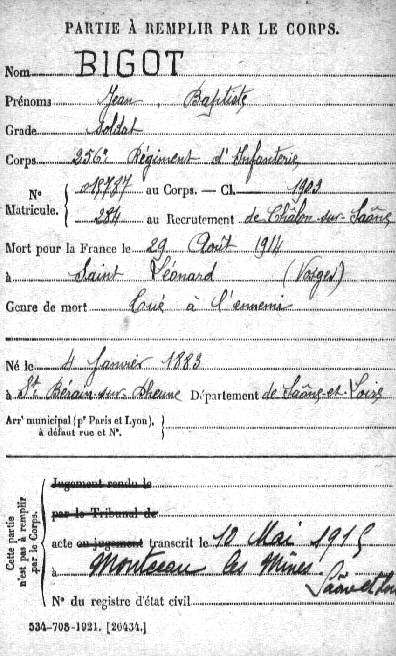 PARTIE À REMPLIR PAR LE CORPS.
Nom BIGOT
Prénoms Jean Baptiste
Grade Soldat
Corps 256e Régiment d'Infanterie
No Matricule. 018787 au Corps. — Cl. 1903
284 au Recrutement de Chalon-sur-Saône
Mort pour la France le 29 Août 1914
à Saint Léonard (Vosges)
Genre de mort Tué à l'ennemi
Né le 4 Janvier 1883
à St Bérain-sur-Dheune Département de Saône-et-Loire
Arrt municipal (pr Paris et Lyon),
à défaut rue et No.
Cette partie n'est pas à remplir par le Corps.
Jugement rendu le
par le Tribunal de
acte ou jugement transcrit le 10 Mai 1915
à Montceau les Mines
Saône et Loire
No du registre d'état civil
534-708-1921. [26434.]